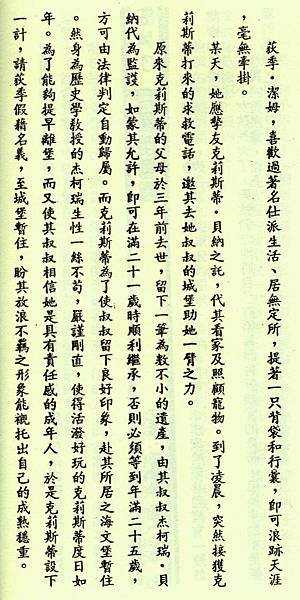 荻季‧潔姆，喜歡過著名仕派生活、居無定所，提著一只背袋和行囊，即可浪跡天涯
，毫無牽掛。
某天，她應摯友克莉斯蒂‧貝納之託，代其看家及照顧寵物。到了凌晨，突然接獲克
莉斯蒂打來的求救電話，邀其去她叔叔的城堡助她一臂之力。
原來克莉斯蒂的父母於三年前去世，留下一筆為數不小的遺產，由其叔叔杰柯瑞‧貝
納代為監護，如蒙其允許，即可在滿二十一歲時順利繼承，否則必須等到年滿二十五歲，
方可由法律判定自動歸屬。而克莉斯蒂為了使叔叔留下良好印象，赴其所居之海文堡暫住
。然身為歷史學教授的杰柯瑞生性一絲不苟，嚴謹剛直，使得活潑好玩的克莉斯蒂度日如
年。為了能夠提早離堡，而又使其叔叔相信她是具有責任感的成年人，於是克莉斯蒂設下
一計，請荻季假藉名義，至城堡暫住，盼其放浪不羈之形象能襯托出自己的成熟穩重。